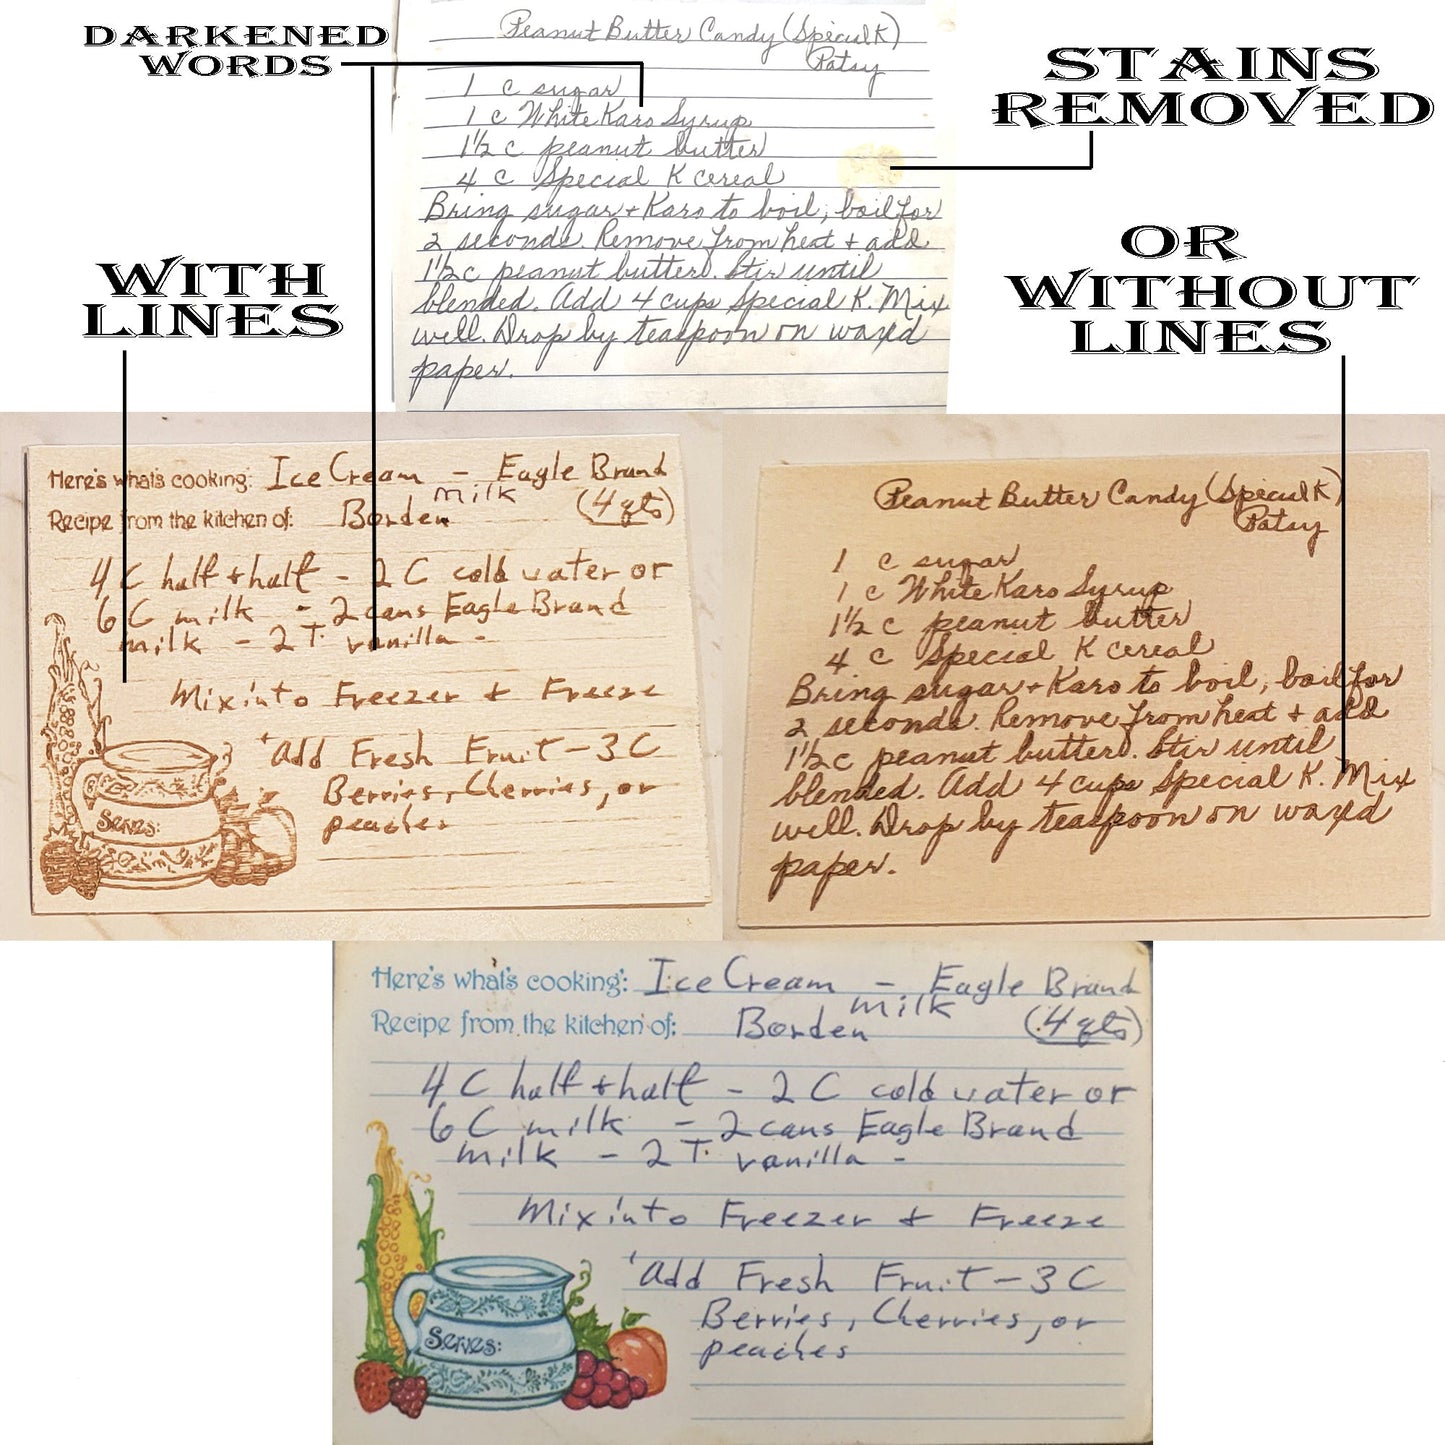 DARKENED
WORDS
Peanut Butter Candy (Special K)
Patsy
1 c sugar
1 c White Karo Syrup
1½ c peanut butter
4 c Special K cereal
Bring sugar + Karo to boil, boil for
2 seconds. Remove from heat + add
1½ c peanut butter. Stir until
blended. Add 4 cups Special K. Mix
well. Drop by teaspoon on waxed
paper.
STAINS
REMOVED
WITH
LINES
OR
WITHOUT
LINES
Here's what's cooking: Ice Cream - Eagle Brand
milk
Recipe from the kitchen of: Borden (4 qts)
4 C half + half - 2 C cold water or
6 C milk - 2 cans Eagle Brand
milk - 2 T. vanilla -
Mix into Freezer + Freeze
Add Fresh Fruit - 3 C
Berries, Cherries, or
peaches
Serves:
Peanut Butter Candy (Special K)
Patsy
1 c sugar
1 c White Karo Syrup
1½ c peanut butter
4 c Special K cereal
Bring sugar + Karo to boil, boil for
2 seconds. Remove from heat + add
1½ c peanut butter. Stir until
blended. Add 4 cups Special K. Mix
well. Drop by teaspoon on waxed
paper.
Here's what's cooking: Ice Cream - Eagle Brand
milk
Recipe from the kitchen of: Borden (4 qts)
4 C half + half - 2 C cold water or
6 C milk - 2 cans Eagle Brand
milk - 2 T. vanilla -
Mix into Freezer + Freeze
Add Fresh Fruit - 3 C
Berries, Cherries, or
peaches
Serves: